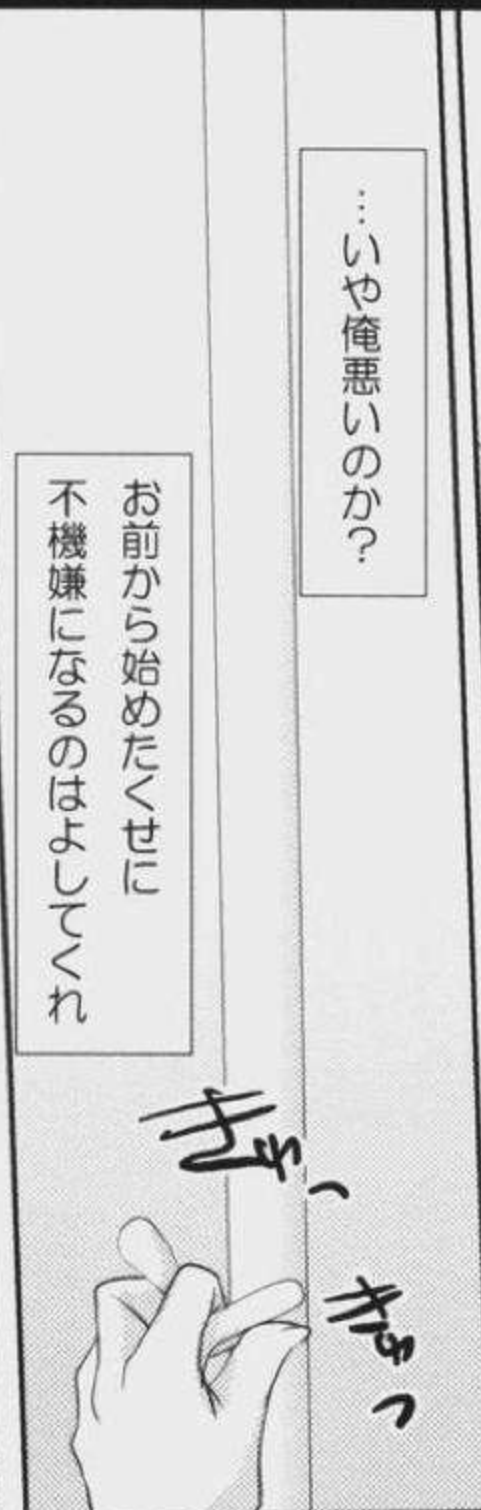 …いや俺悪いのか?
お前から始めたくせに
不機嫌になるのはよしてくれ
きゅっ
きゅっ